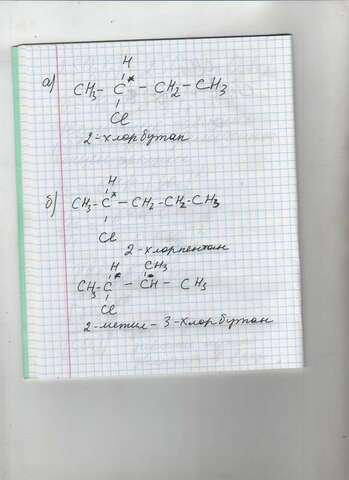 а)
H
CH3 - C* - CH2 - CH3
Cl
2-хлорбутан
б)
H
CH3 - C* - CH2 - CH2 - CH3
Cl
2-хлорпентан
H CH3
CH3 - C* - CH* - CH3
Cl
2-метил-3-хлорбутан